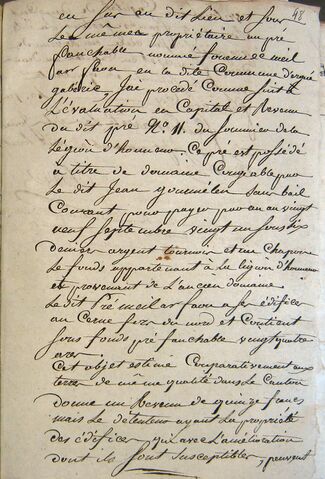 48
en sur en dit Lieu et pour
Le meme propriétaire un pré
fauchable nommé foenec meil
ar faou en la dite Commune d'ergué
gaberic, J'ai procedé Comme suit à
L'évaluation en Capital et Revenu
du dit pré N.º 11. du sommier de la
Légion d'honneur. Ce pré est possédé
a titre de domaine Congéable par
Le dit Jean gourmelen sans bail
Courant pour payer par an au vingt
neuf Septembre vingt un sous six
denier argent tournois et une Chapon
Le fonds appartenant à la légion d'honneur
et provenant de L'ancien domaine
Le dit Pré meil ar faou a ses édifices
au Cerne fors du nord et Contient
sous fonds pré fauchable vingt quatre
ares
Cet objet estimé Comparativement aux
terres de meme qualité dans Le Canton
donne un Revenu de quinze francs
mais Le detenteur ayant La propriété
des édifices qui avec L'amélioration
dont ils sont susceptibles, peuvent